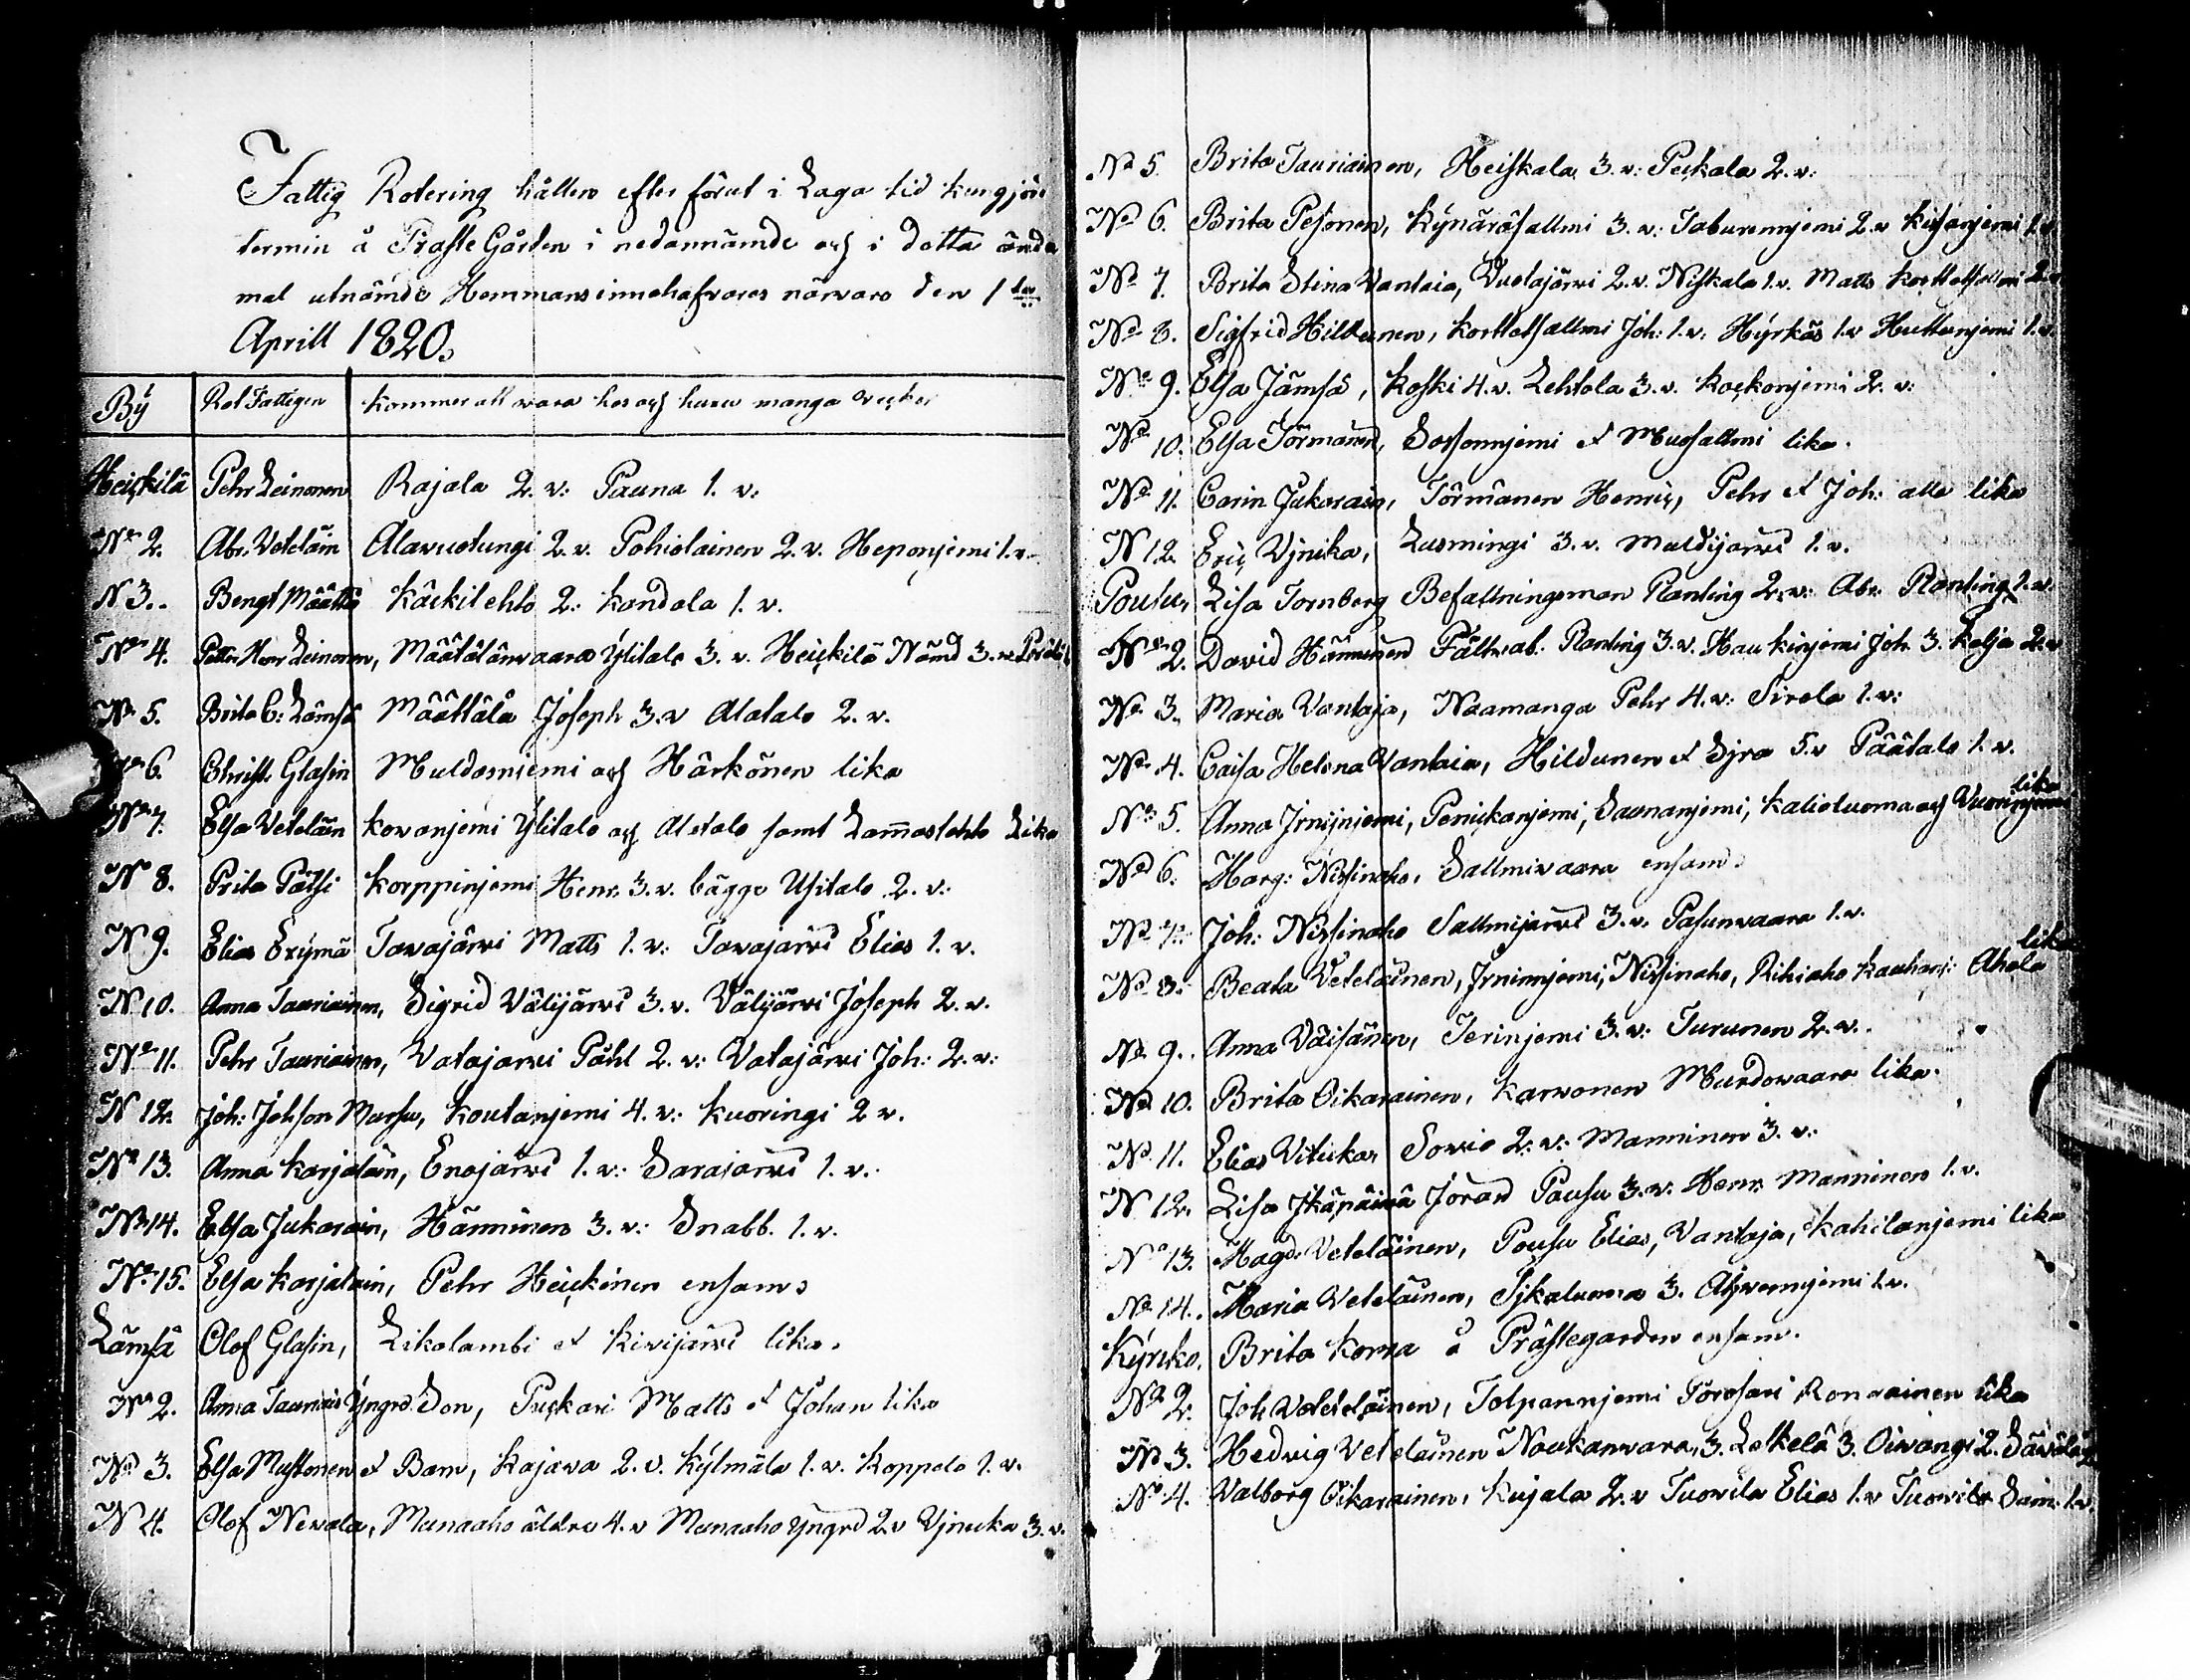 Fattig Rotering hållen efter förut i Laga tid kungjord
termin å Präste Gården i nedannämde och i detta ända
mal utnämde Hemmans innehafvares närvaro den 1 ten
Aprill 1820.
By Rot Fattigen kommer att vara hos och huru manga veckor
Heickilä Pehr Leinonen Rajala 2. v: Pauna 1. v:
No 2. Abr. Veteläin Alavuotungi 2. v. Pohiolainen 2. v. Heponjemi 1. v.
N 3. Bengt Määttä Käckilehto 2. Kandola 1. v.
No 4. Petter Henr Leinonen, Määttälänvaara Ylitalo 3. v. Heickilä Nämd 3. v.
No 5. Brita C: Lämsä Määttälä Joseph 3. v Alatalo 2. v.
No 6. Christ. Glasin Muldosniemi och Härkönen lika
No 7. Elsa Veteläin Kovanjemi Ylitalo och Alatalo samt Lamaslehto Lika
No 8. Brita Pätsi Korppinjemi Henr. 3. v. bägge Usitalo 2. v:
N 9. Elias Erymä Tavajärvi Matts 1. v: Tavajärvi Elias 1. v.
N 10. Anna Tauriainen, Sigrid Välijärvi 3. v. Välijärvi Joseph 2. v.
No 11. Pehr Tauriainen, Vatajarvi Påhl 2. v: Vatajärvi Joh: 2. v:
N 12. Joh: Johson Mursu, Koutanjemi 4. v: Kuoringi 2 v.
No 13. Anna Karjalain, Enojärvi 1. v: Sarajärvi 1. v.
No 14. Elsa Jukarain, Hänninen 3. v: Snabb. 1. v.
No 15. Elsa Karjalain, Pehr Heickinen ensam
Lämsä Olof Glasin, Likolambi et Kivijärvi lika.
No 2. Anna Tauriais Yngrd. Son, Puckari Matts et Johan lika
No 3. Elsa Mustonen et Barn, Kajava 2. v. Kylmälä 1. v. Koppelo 1. v.
N 4. Olof Nevala, Munaaho äldre 4. v Munaaho yngrd 2 v Vjnicka 3. v.
No 5. Brita Tauriainen, Heiskala 3. v: Peckala 2. v:
No 6. Brita Pesonen, Kynäräsallmi 3. v: Taburinjemi 2. v Kusonjemi 1. v
No 7. Brita Stina Vantaia, Vuotajärvi 2. v. Niskala 1. v. Matts Korttetsallmi 2. v
No 8. Sigfrid Hildunen, Korttetsallmi Joh: 1. v: Hyrkäs 1. v Huttunjemi 1. v.
No 9. Elsa Jämsä, Koski 4. v. Lehtola 3. v. Kockonjemi 2. v:
No 10. Elsa Törmänen, Sossonnjemi et Muosallmi lika.
No 11. Carin Jukarain, Törmänen Henric, Pehr et Joh: alla lika
N 12. Eric Vjnika, Lusmingi 3. v. Muldijärvi 1. v.
Pousu, Lisa Tornberg Befallningsman Planting 2. v: Abr. Planting 2. v.
No 2. David Hänninen Fältw ab. Planting 3. v. Haukinjemi Joh 3. Kelja 2. v
No 3. Maria Vantaja, Naamanga Pehr 4. v: Sirola 1. v:
No 4. Caisa Helena Vantaia, Hildunen et Sjra 5. v Päätalo 1. v.
No 5. Anna Jrnijnjemi, Penickanjemi, Saunanjemi, Kalioluoma och Vuorinjemi lika
No 6. Marg: Nissinaho, Sallmivaara ensam.
No 7. Joh: Nissinaho Sallmijarvi 3. v. Pasunvaara 1. v.
No 8. Beata Veteläinen, Jrninnjemi, Nissinaho, Rihiaho Kauhanj: Ahola lika
No 9. Anna Väisänen, Terinjemi 3. v: Turunen 2. v.
No 10. Brita Oikarainen, Karvonen Murdovaara lika.
No 11. Elias Vitickar Sovio 2. v: Manninen 3. v:
N 12. Lisa Jkäpäinä Jöran Pousu 3. v. Henr. Manninen 1. v.
No 13. Magd. Veteläinen, Pousu Elias, Vantaja, Kahilanjemi lika
No 14. Maria Veteläinen, Sjkaluoma 3. Ahvennjemi 1. v.
Kyrcko. Brita Korva å Prästegarden ensam.
No 2. Joh Veteläinen, Tolpannjemi Porosari Ronvainen lika
No 3. Hedvig Veteläinen Noukanvara, 3. Leskelä 3. Oivangi 2.
No 4. Valborg Oikarainen, Kujala 2. v Tuovila Elias 1. v Tuovila Sim: 1. v.